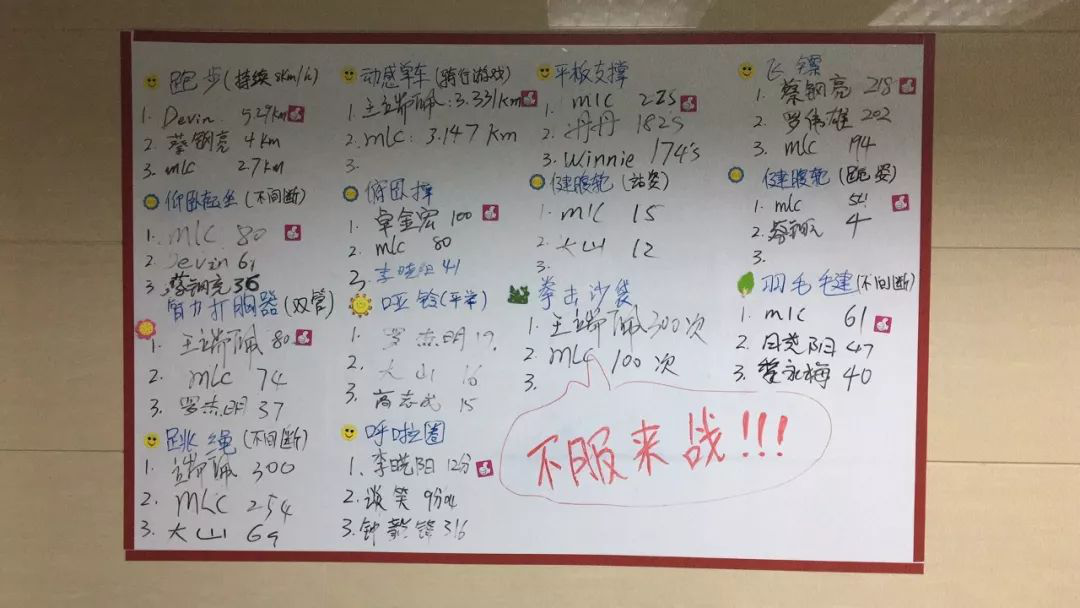 跑步(持续8km/h)
1. Devin 5.29km
2. 蔡钢亮 4km
3. mlc 2.7km
动感单车(骑行游戏)
1. 王瑞佩:3.331km
2. mlc: 3.147km
3.
平板支撑
1. mlc 225
2. 丹丹 182s
3. Winnie 174's
飞镖
1. 蔡钢亮 218
2. 罗伟雄 202
3. mlc 194
仰卧起坐(不间断)
1. mlc 80
2. Devin 61
3. 蔡钢亮 36
俯卧撑
1. 卓金宏 100
2. mlc 80
3. 李晓阳 41
健腹轮(站姿)
1. mlc 15
2. 大山 12
3.
健腹轮(跪姿)
1. mlc
2. 蔡钢亮 4
3.
臂力扩胸器(双管)
1. 王瑞佩 80
2. mlc 74
3. 罗杰明 37
哑铃(平举)
1. 罗杰明 17
2. 大山 16
3. 高志成 15
拳击沙袋
1. 王瑞佩 300次
2. mlc 100次
3.
羽毛毛建(不间断)
1. mlc 61
2. 阳 47
3. 永梅 40
跳绳(不间断)
1. 瑞佩 300
2. MLC 254
3. 大山 69
呼啦圈
1. 李晓阳 12分
2. 谈笑 9分
3. 钟 锋 316
不服来战!!!